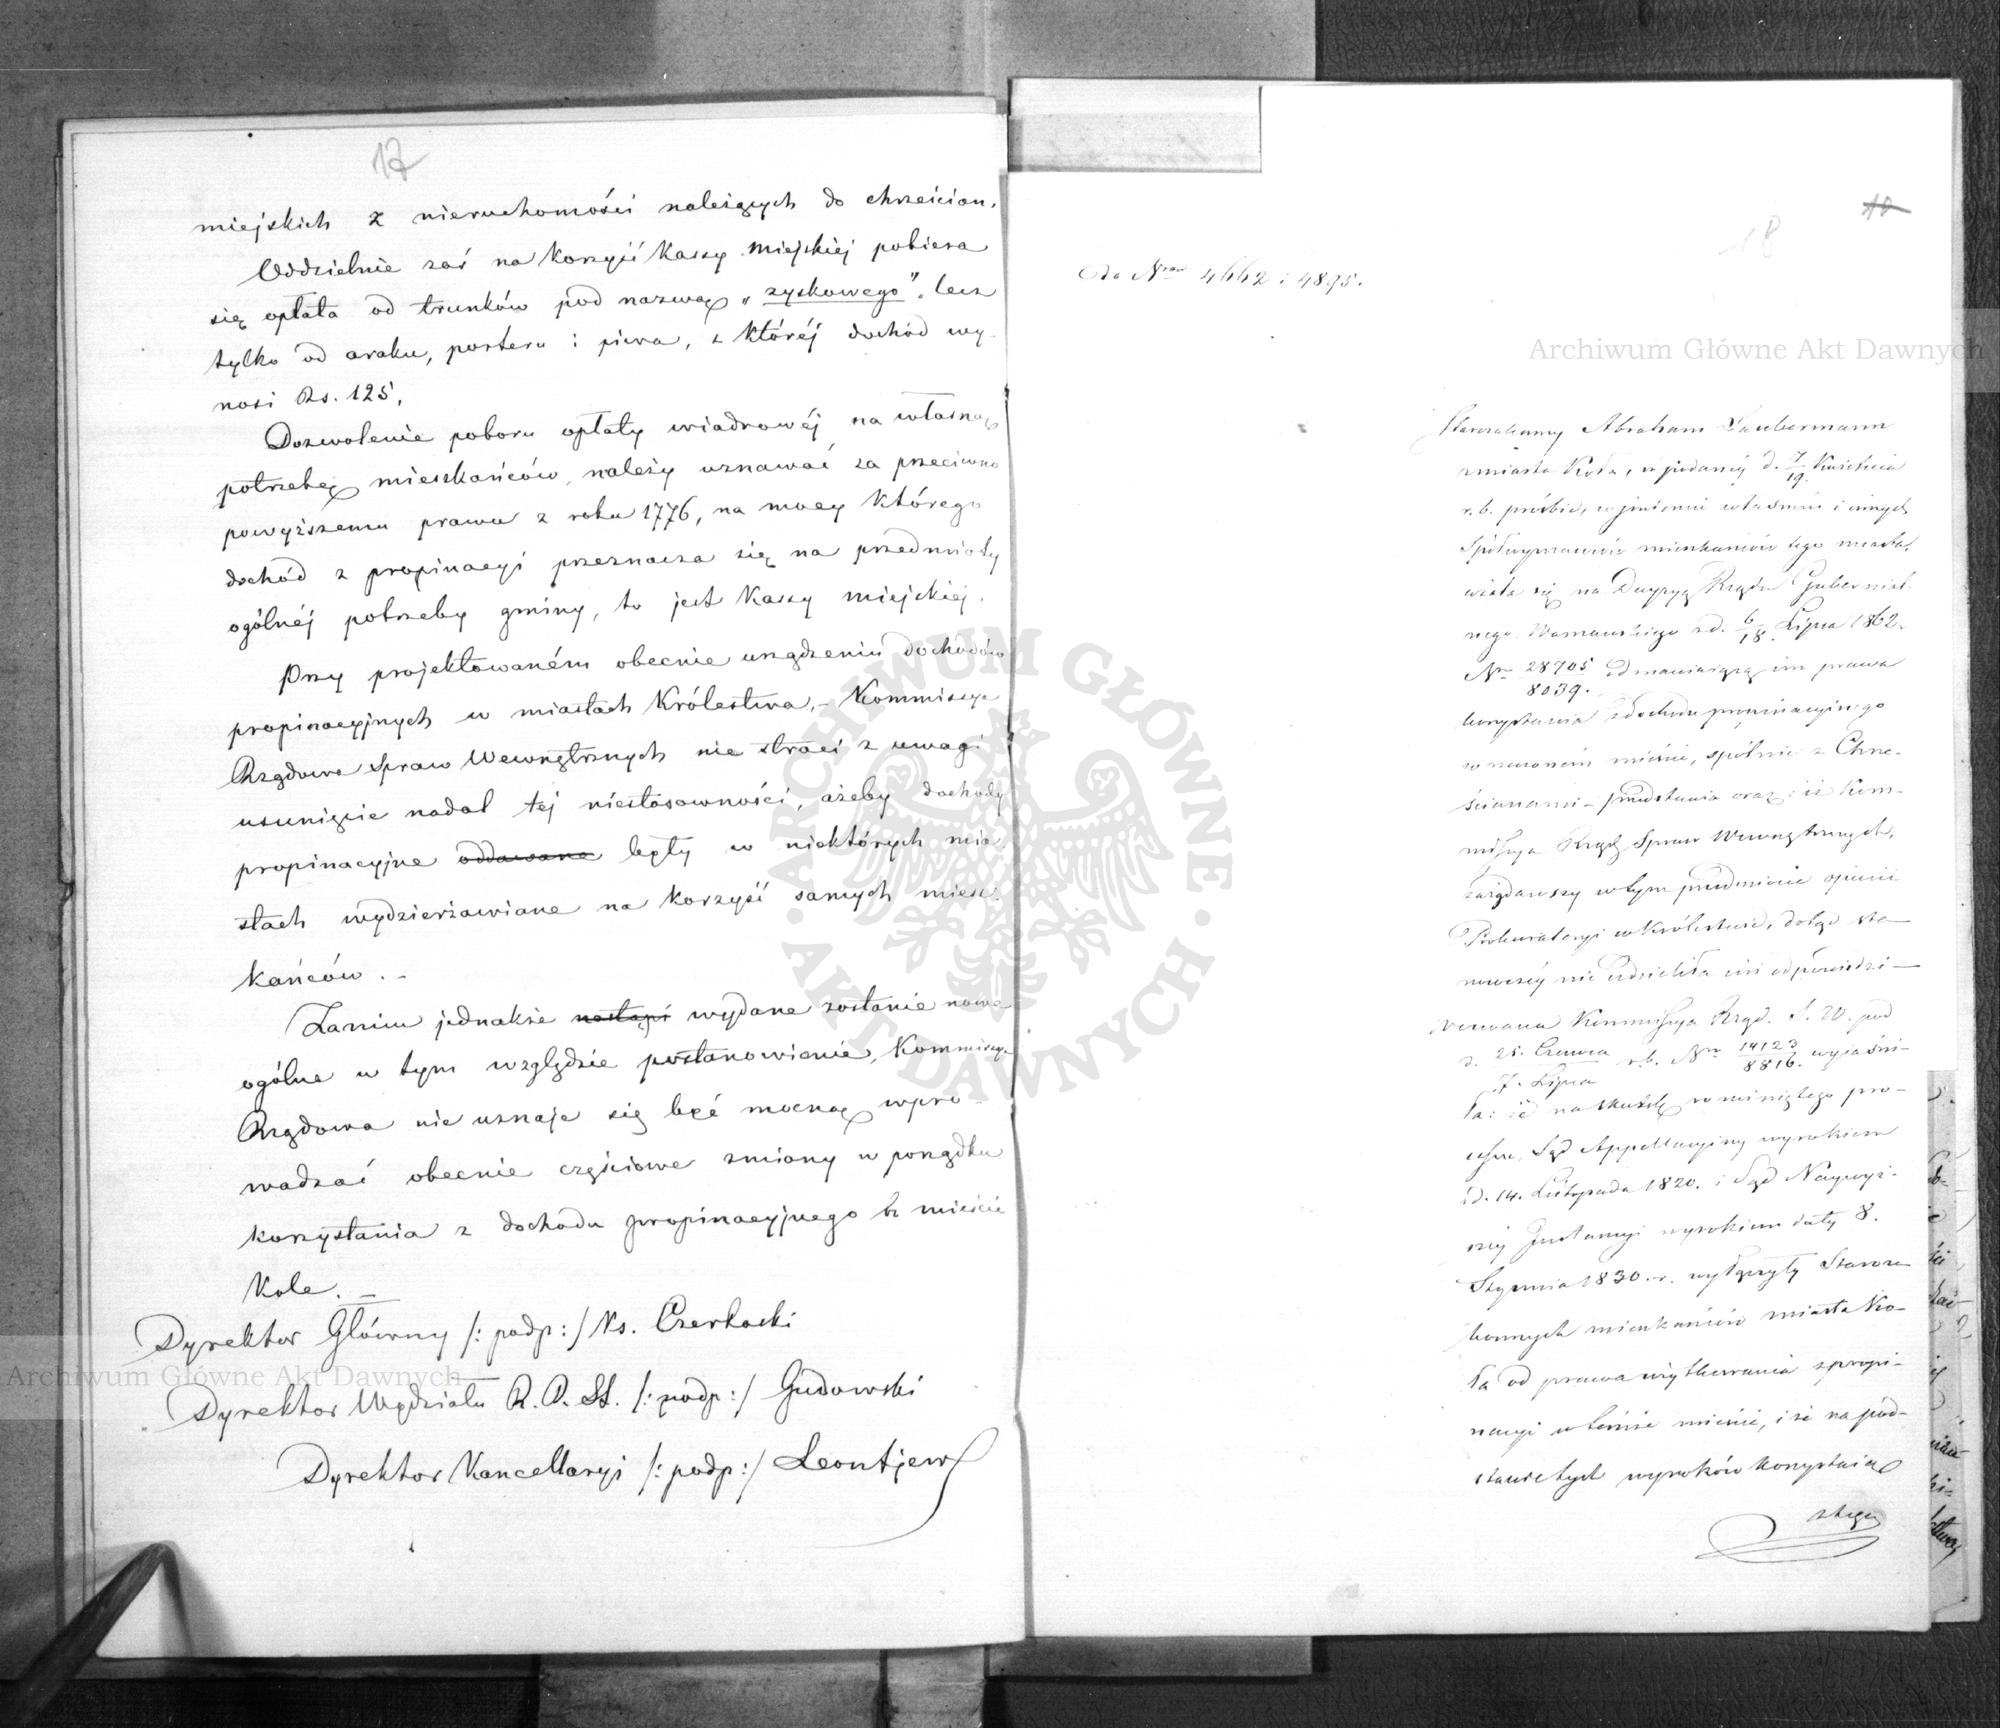 17
miejskich z nieruchomości należących do chrześcian.
Oddzielnie zaś na korzyść Kassy Miejskiej pobiera
się opłata od trunków pod nazwą „zyskowego” lecz
tylko od araku, porteru i piwa, z której dochód wy-
nosi Rs. 125.
Dozwolenie poboru opłaty wiadrowéj na własną
potrzebę mieszkańców, należy uznawać za przeciwne
powyższemu prawu z roku 1776, na mocy którego
dochód z propinacyi przeznacza się na przedmioty
ogólnéj potrzeby gminy, to jest Kassy miejskiej.
Przy projektowaném obecnie urządzeniu dochodów
propinacyjnych w miastach Królestwa, – Kommissya
Rządowa Spraw Wewnętrznych nie straci z uwagi
usunięcie nadal tej niestosowności, ażeby dochody
propinacyjne oddawane były w niektórych mia-
stach wydzierżawiane na korzyść samych miesz-
kańców. –
Zanim jednakże nastąpi wydane zostanie nowe
ogólne w tym względzie postanowienie, Kommissya
Rządowa nie uznaje się być mocną wpro-
wadzać obecnie częściowe zmiany w porządku
korzystania z dochodu propinacyjnego w mieście
Kole. –
Dyrektor Główny /: podp :/ Ks. Czerkaski
Dyrektor Wydziału /: podp :/ Gudowski
Dyrektor Kancellaryi /: podp :/ Leontjew
18
10
Do Nrow 4662 i 4895.
Starozakonny Abraham Taubermann
z miasta Koła, w podanéj d. 7/19 Kwietnia
r. b. prośbie, w imieniu własném i innych
Spółwyznawców mieszkańców tego miasta,
użala się na Decyzyą Rządu Gubernial-
nego Warszawskiego z d. 6/18 Lipca 1862.
Nr 28705/8039. odmawiającą im prawa
korzystania z dochodu propinacyjnego
w rzeczonem mieście, spólnie z Chrze-
ścianami – przedstawia oraz: iż Kom-
missya Rząd. Spraw Wewnętrznych,
zażądawszy w tym przedmiocie opinii
Prokuratoryi w Królestwie, dotąd sta-
nowczej nie udzieliła im odpowiedzi –
Wezwana Kommissya Rząd. S. W. pod
d. 25. Czerwca/7. Lipca r. b. Nr 14123/8816. wyjaśni-
ła: iż na skutek wynikłego pro-
cessu, Sąd Appellacyjny wyrokiem
z d. 14. Listopada 1820. i Sąd Najwyż-
szej Instancyi wyrokiem daty 8.
Stycznia 1830. r. wyłączyły Staroza-
konnych mieszkańców miasta Ko-
ła od prawa użytkowania z propi-
nacyi w témże mieście, i że na pod-
stawie tych wyroków korzystają
z tego
Archiwum Główne Akt Dawnych
Archiwum Główne Akt Dawnych
ARCHIWUM GŁÓWNE · AKT DAWNYCH ·